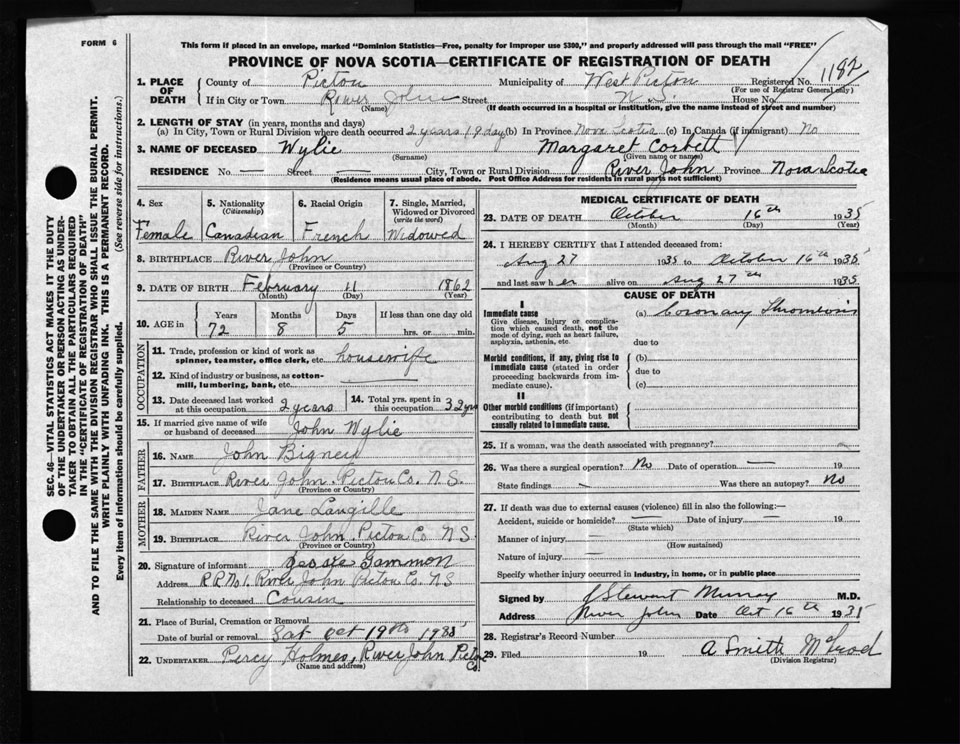 FORM 6
This form if placed in an envelope, marked "Dominion Statistics—Free, penalty for improper use $300," and properly addressed will pass through the mail "FREE"
PROVINCE OF NOVA SCOTIA—CERTIFICATE OF REGISTRATION OF DEATH
1. PLACE OF DEATH County of Pictou Municipality of West Pictou Registered No. 1182
(For use of Registrar General only)
If in City or Town River John Street N.S. House No.
(Name) (If death occurred in a hospital or institution, give the name instead of street and number)
2. LENGTH OF STAY (in years, months and days)
(a) In City, Town or Rural Division where death occurred 2 years 19 day (b) In Province Nova Scotia (c) In Canada (if immigrant) No
3. NAME OF DECEASED Wylie Margaret Corbett
(Surname) (Given name or names)
RESIDENCE No. — Street — City, Town or Rural Division River John Province Nova Scotia
(Residence means usual place of abode. Post Office Address for residents in rural parts not sufficient)
4. Sex 5. Nationality (Citizenship) 6. Racial Origin 7. Single, Married, Widowed or Divorced (write the word)
Female Canadian French Widowed
8. BIRTHPLACE River John
(Province or Country)
9. DATE OF BIRTH February 11 1862
(Month) (Day) (Year)
10. AGE in Years Months Days If less than one day old
72 8 5 hrs. or min.
OCCUPATION
11. Trade, profession or kind of work as spinner, teamster, office clerk, etc. housewife
12. Kind of industry or business, as cotton-mill, lumbering, bank, etc. —
13. Date deceased last worked at this occupation 2 years 14. Total yrs. spent in this occupation 32 yrs
15. If married give name of wife or husband of deceased John Wylie
FATHER
16. NAME John
17. BIRTHPLACE River John. Pictou Co. N.S.
(Province or Country)
MOTHER
18. MAIDEN NAME Jane Langille
19. BIRTHPLACE River John. Pictou Co NS
(Province or Country)
20. Signature of informant Jessie Gammon
Address R.R. No 1. River John Pictou Co. NS
Relationship to deceased Cousin
21. Place of Burial, Cremation or Removal
Date of burial or removal Sat Oct 19th 1935
22. UNDERTAKER Percy Holmes, River John Pictou Co
(Name and address)
MEDICAL CERTIFICATE OF DEATH
23. DATE OF DEATH October 16th 1935
(Month) (Day) (Year)
24. I HEREBY CERTIFY that I attended deceased from:
Aug 27 1935 to October 16th 1935
and last saw her alive on Aug 27th 1935
CAUSE OF DEATH
I
Immediate cause (a) Coronary Thrombosis
Give disease, injury or complication which caused death, not the mode of dying, such as heart failure, asphyxia, asthenia, etc.
due to
Morbid conditions, if any, giving rise to immediate cause (stated in order proceeding backwards from immediate cause). (b)
due to
(c)
II
Other morbid conditions (if important) contributing to death but not causally related to immediate cause.
25. If a woman, was the death associated with pregnancy? —
26. Was there a surgical operation? No Date of operation — 19
State findings — Was there an autopsy? No
27. If death was due to external causes (violence) fill in also the following:—
Accident, suicide or homicide? — Date of injury — 19
(State which)
Manner of injury —
(How sustained)
Nature of injury —
Specify whether injury occurred in industry, in home, or in public place
Signed by J Stewart Murray M.D.
Address River John Date Oct 16th 1935
28. Registrar's Record Number
29. Filed 19 A Smith McLeod
(Division Registrar)
SEC. 46—VITAL STATISTICS ACT MAKES IT THE DUTY
OF THE UNDERTAKER OR PERSON ACTING AS UNDER-
TAKER TO OBTAIN ALL THE PARTICULARS REQUIRED
IN THE "CERTIFICATE OF REGISTRATION OF DEATH"
AND TO FILE THE SAME WITH THE DIVISION REGISTRAR WHO SHALL ISSUE THE BURIAL PERMIT.
WRITE PLAINLY WITH UNFADING INK. THIS IS A PERMANENT RECORD.
Every item of information should be carefully supplied. (See reverse side for instructions.)